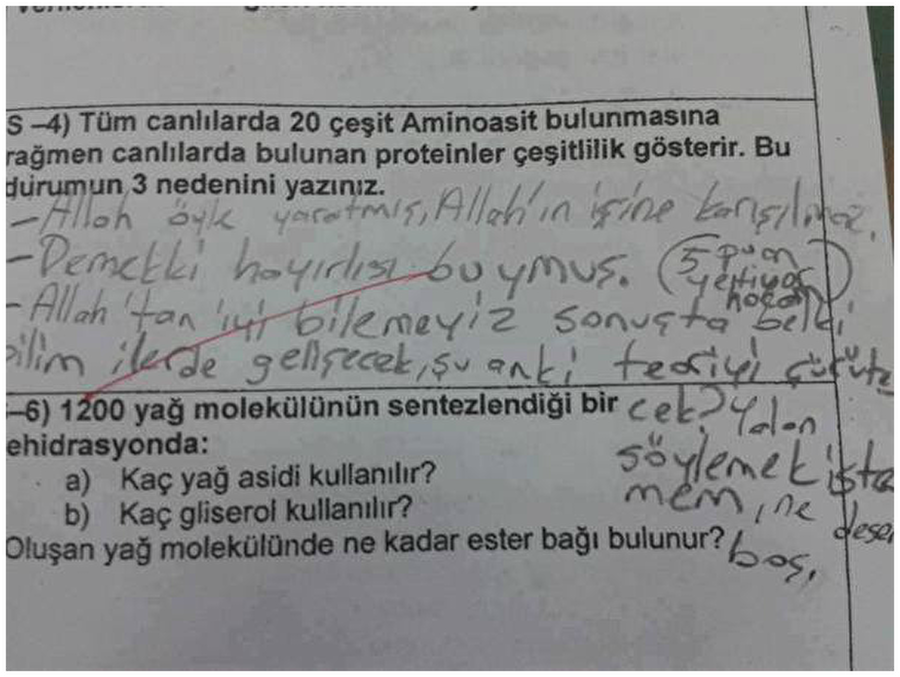 S-4) Tüm canlılarda 20 çeşit Aminoasit bulunmasına
rağmen canlılarda bulunan proteinler çeşitlilik gösterir. Bu
durumun 3 nedenini yazınız.
-Allah öyle yaratmış, Allah'ın işine karışılmaz.
-Demekki hayırlısı buymuş. (5 puan
yetiyor
hocam)
-Allah'tan iyi bilemeyiz sonuçta belki
bilim ilerde gelişecek, şu anki teoriyi çürüte
cek? Yalan
söylemek iste
mem, ne desem
boş.
-6) 1200 yağ molekülünün sentezlendiği bir
ehidrasyonda:
a) Kaç yağ asidi kullanılır?
b) Kaç gliserol kullanılır?
Oluşan yağ molekülünde ne kadar ester bağı bulunur?